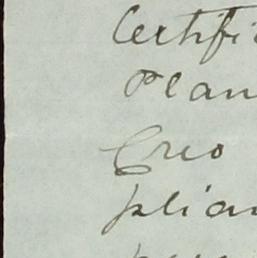 Certifi
Plan
Creo
plian